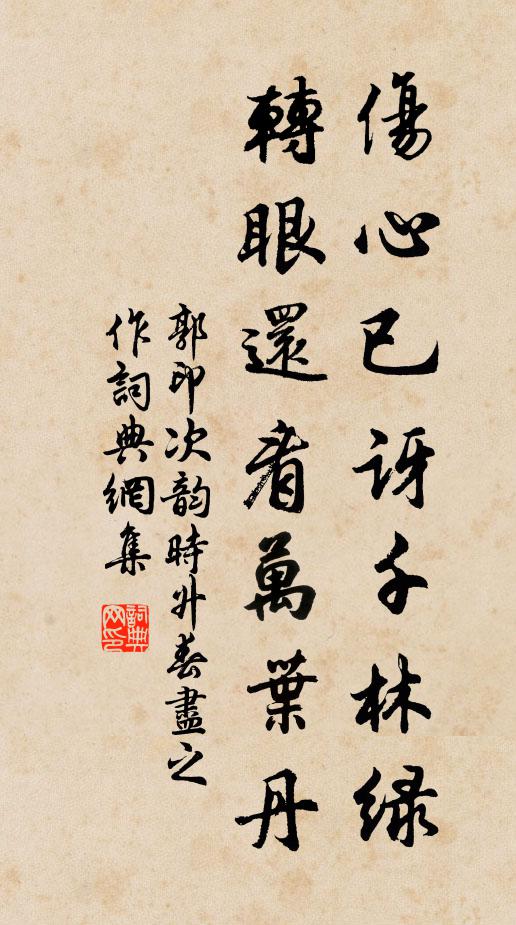 傷心已訝千林綠
轉眼還看萬葉丹
郭印次韵時升春盡之
作詞典網集
詞典網印